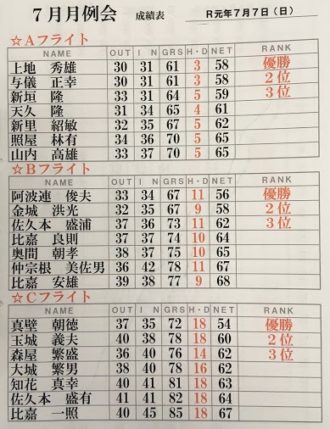 7月月例会 成績表 R元年7月7日(日)
☆Aフライト
NAME OUT I N GRS H・D NET RANK
上地 秀雄 30 31 61 3 58 優勝
与儀 正幸 30 31 61 3 58 2位
新垣 隆 33 31 64 5 59 3位
天久 隆 31 34 65 4 61
新里 紹敏 32 35 67 5 62
照屋 林有 34 36 70 5 65
山内 高雄 33 37 70 5 65
☆Bフライト
NAME OUT I N GRS H・D NET RANK
阿波連 俊夫 33 34 67 11 56 優勝
金城 洪光 32 35 67 9 58 2位
佐久本 盛浦 37 36 73 11 62 3位
比嘉 良則 37 37 74 10 64
奥間 朝孝 38 37 75 10 65
仲宗根 美佐男 36 42 78 11 67
比嘉 安雄 39 38 77 9 68
☆Cフライト
NAME OUT I N GRS H・D NET RANK
真壁 朝徳 37 35 72 18 54 優勝
玉城 義夫 40 38 78 18 60 2位
森屋 繁盛 36 40 76 14 62 3位
大城 繁男 38 40 78 16 62
知花 真幸 40 41 81 18 63
佐久本 盛有 41 41 82 18 64
比嘉 一照 40 45 85 18 67